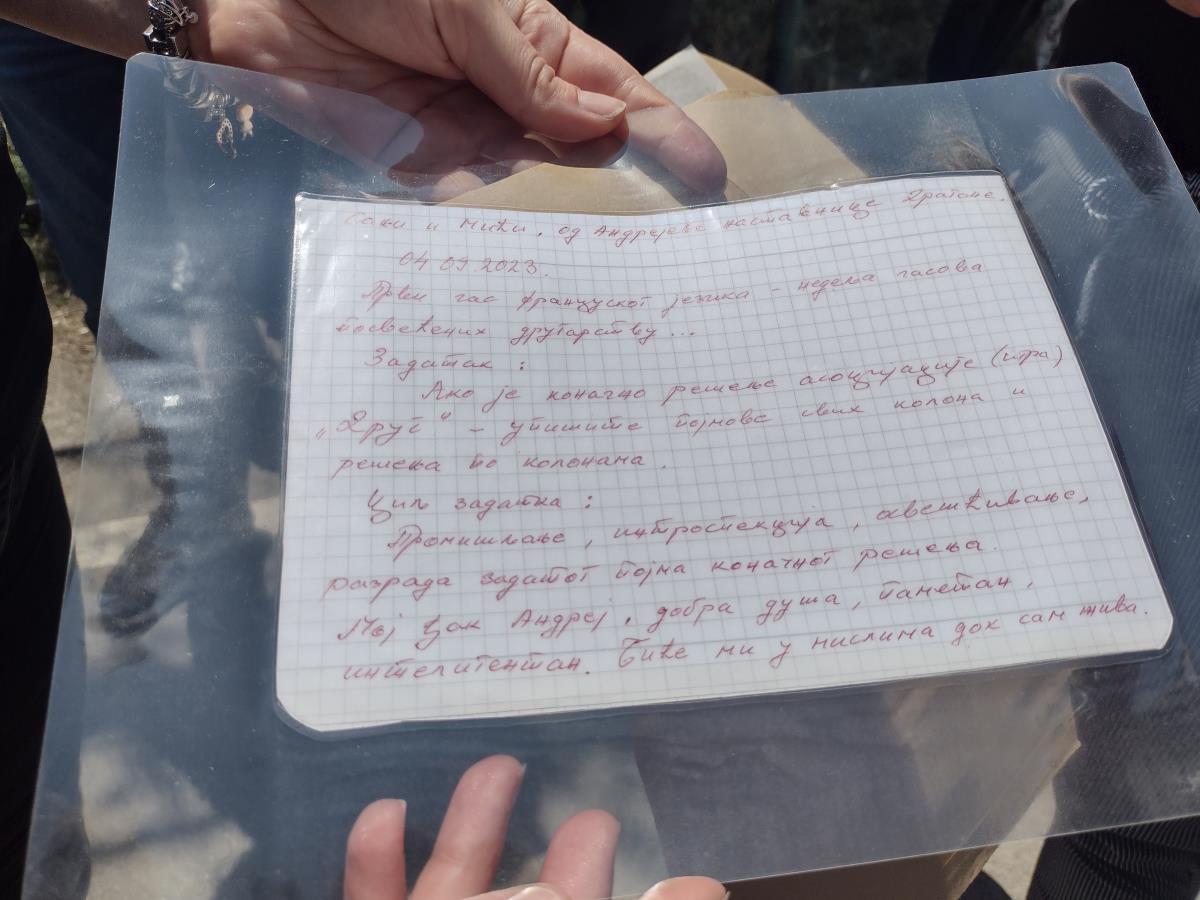 Сањи и Мики, од Андрејеве наставнице Драгане.
04 09. 2023.
Први час француског језика - недеља часова
посвећених другарству...
Задатак :
Ако је коначно решење асоцијације (игра)
„Друг“ - упишите појмове свих колона и
решења по колонама.
Циљ задатка :
Промишљање, интроспекција, освешћивање,
разрада задатог појма коначног решења.
Мој ђак Андреј, добра душа, паметан,
интелигентан. Биће ми у мислима док сам жива.